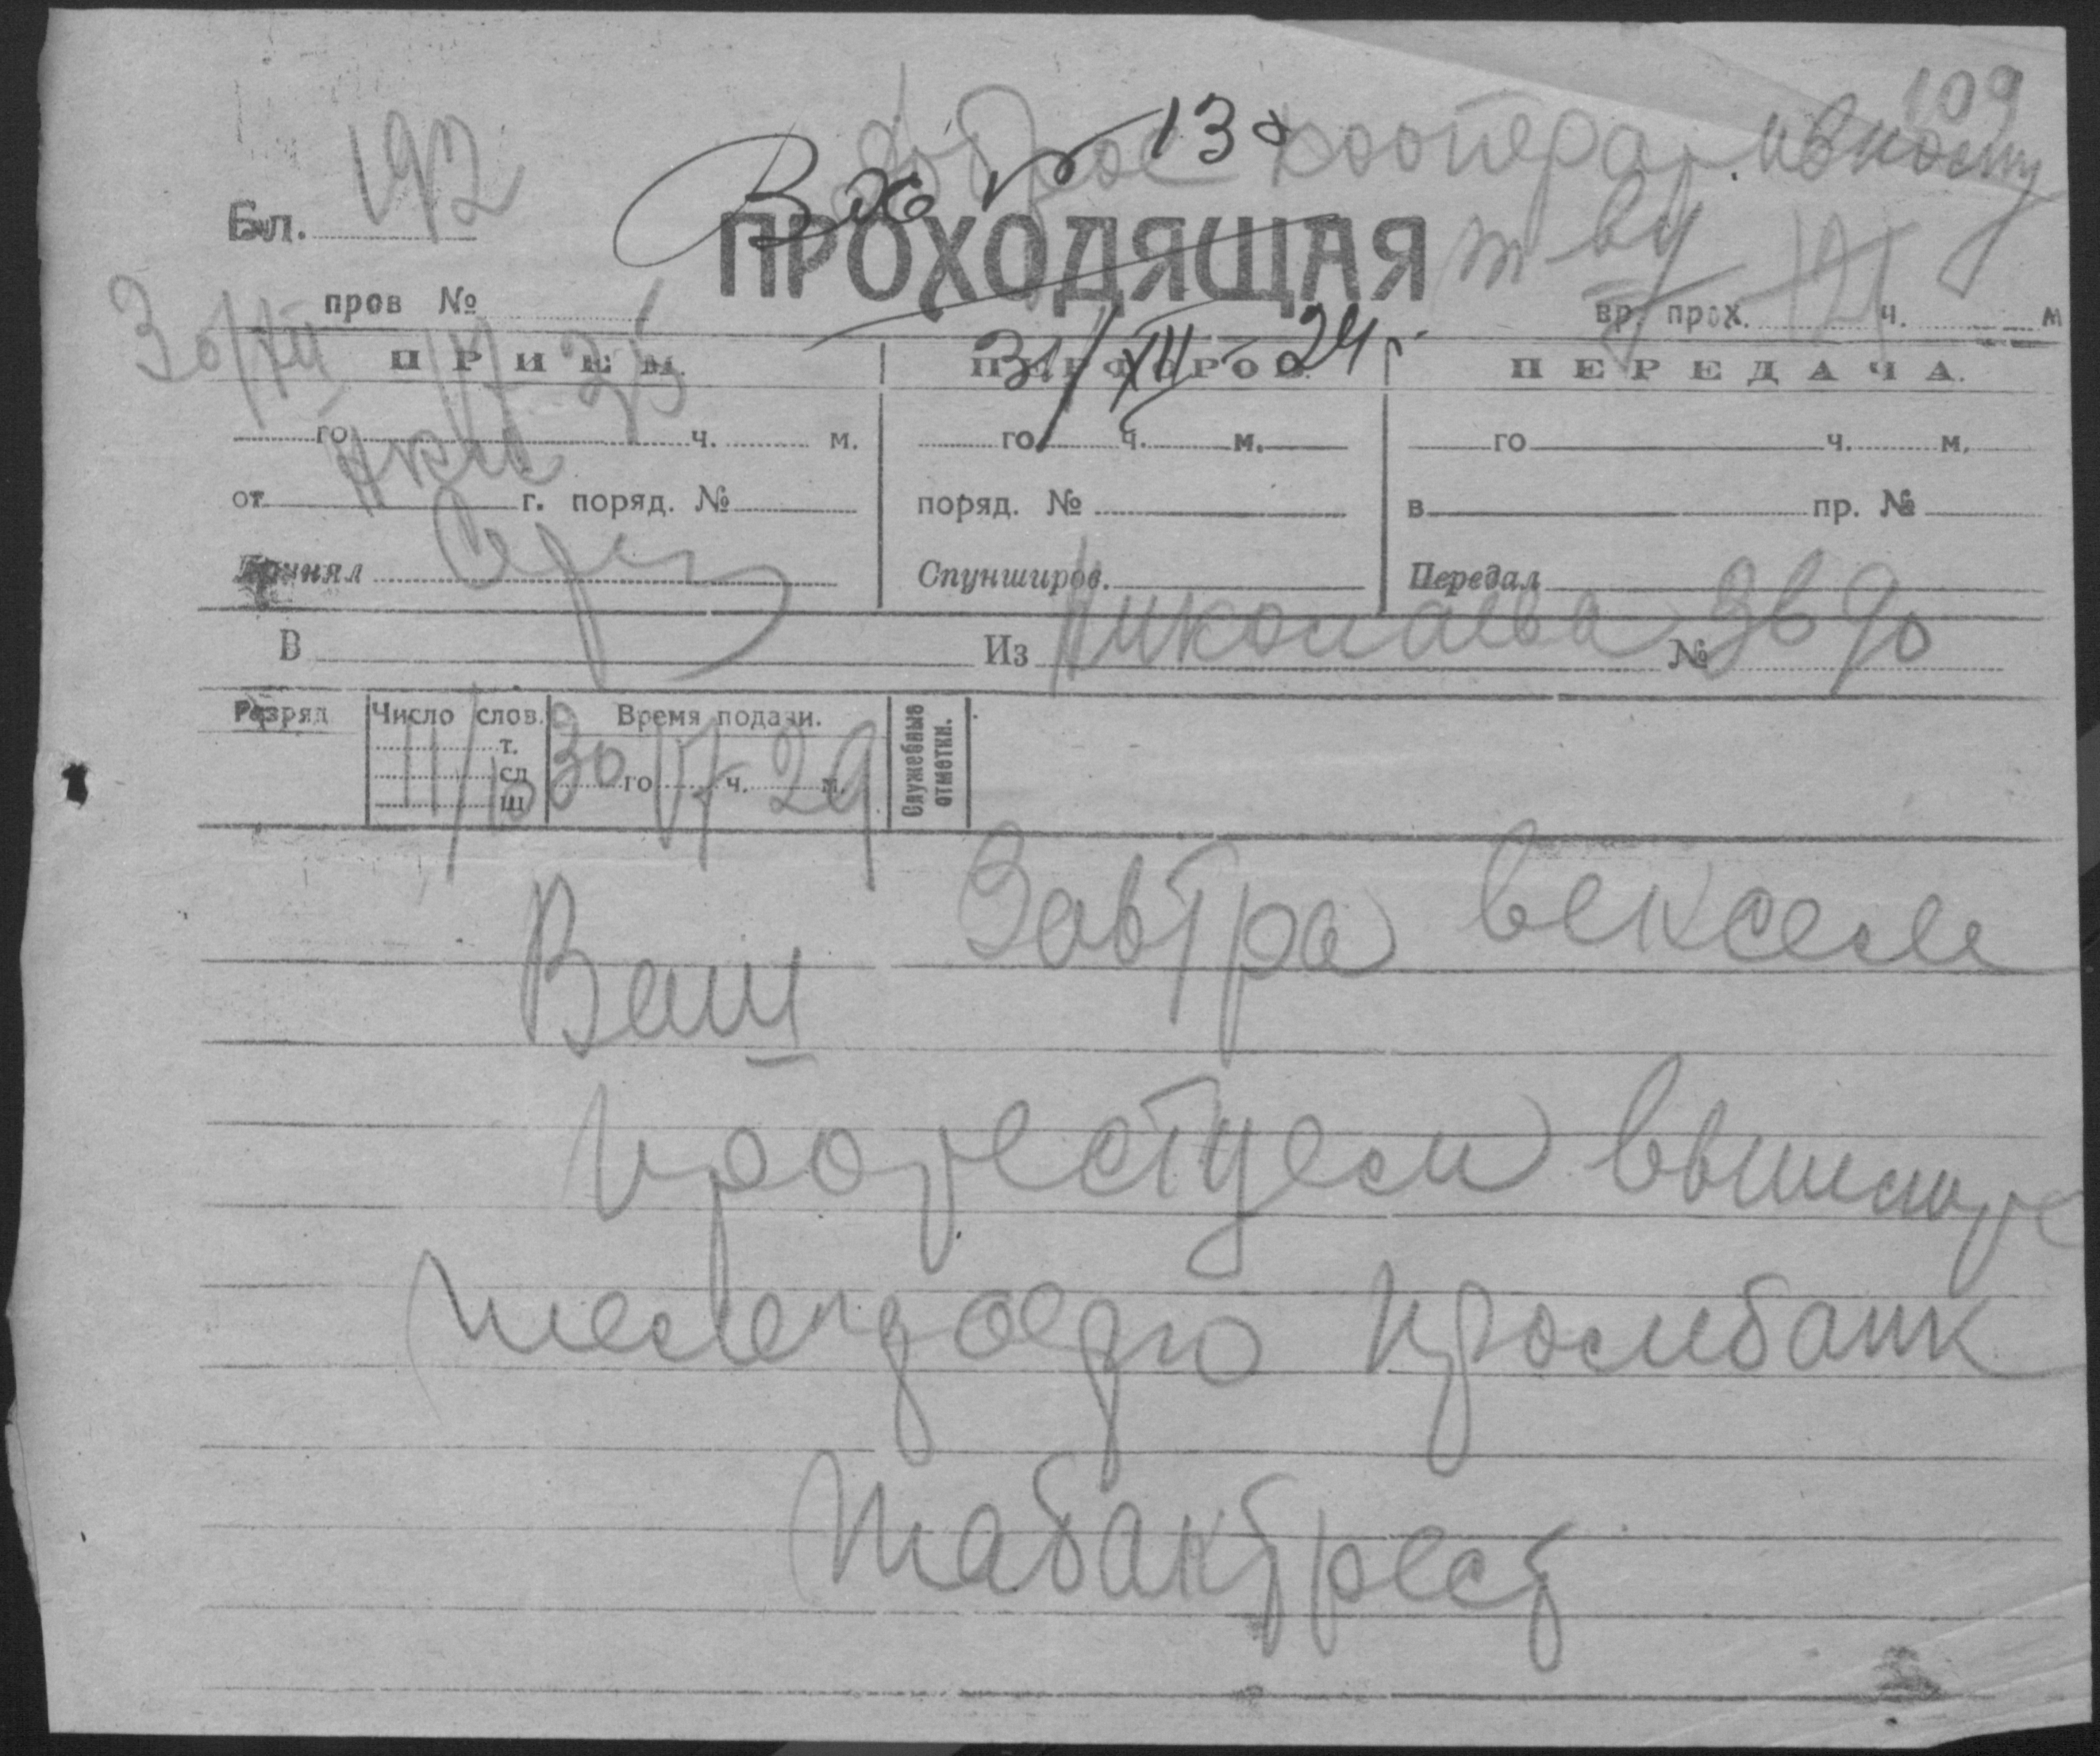 109
кооперативному
т ву
Вх № 13
Бл. 192
ПРОХОДЯЩАЯ
пров №
вр. прох. ч. м
30/XII 17 35
31/XII-24 г.
ПРИЕМ. ПЕРФОРОВ. ПЕРЕДАЧА.
го ч. м. го ч. м. го ч. м.
от г. поряд. № поряд. № в пр. №
Принял Спунширов. Передал
В Из Николаева № 3690
Разряд Число слов. Время подачи. Служебные отметки.
т.
сл 30 го 17 ч. 29 м.
ш
11/
Завтра векселе
Ваш
протестуем вышлите
промбанк
Табактрест